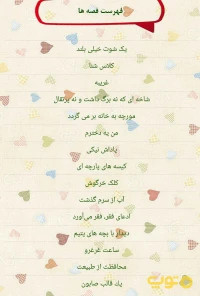 فهرست قصه ها
یک شوت خیلی بلند
کلاس شنا
غریبه
شاخه ای که نه برگ داشت و نه پرتقال
مورچه به خانه بر می گردد
من یه دخترم
پاداش نیکی
کیسه های پارچه ای
کلک خرگوش
آب از سرم گذشت
ادعای فقر، فقر می‌آورد
دیدار با بچه های یتیم
ساعت غرغرو
محافظت از طبیعت
یک قالب صابون